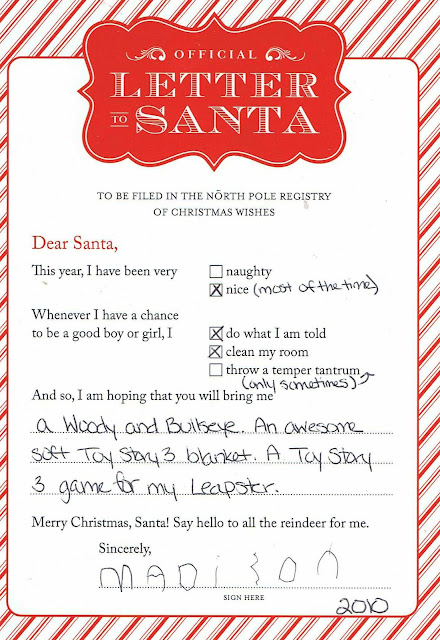 OFFICIAL
LETTER
TO SANTA
TO BE FILED IN THE NORTH POLE REGISTRY
OF CHRISTMAS WISHES
Dear Santa,
This year, I have been very
naughty
nice (most of the time)
Whenever I have a chance
to be a good boy or girl, I
do what I am told
clean my room
throw a temper tantrum
(only sometimes)
And so, I am hoping that you will bring me
a Woody and Bullseye. An awesome
soft Toy Story 3 blanket. A Toy Story
3 game for my Leapster.
Merry Christmas, Santa! Say hello to all the reindeer for me.
Sincerely,
MADISON
SIGN HERE
2010